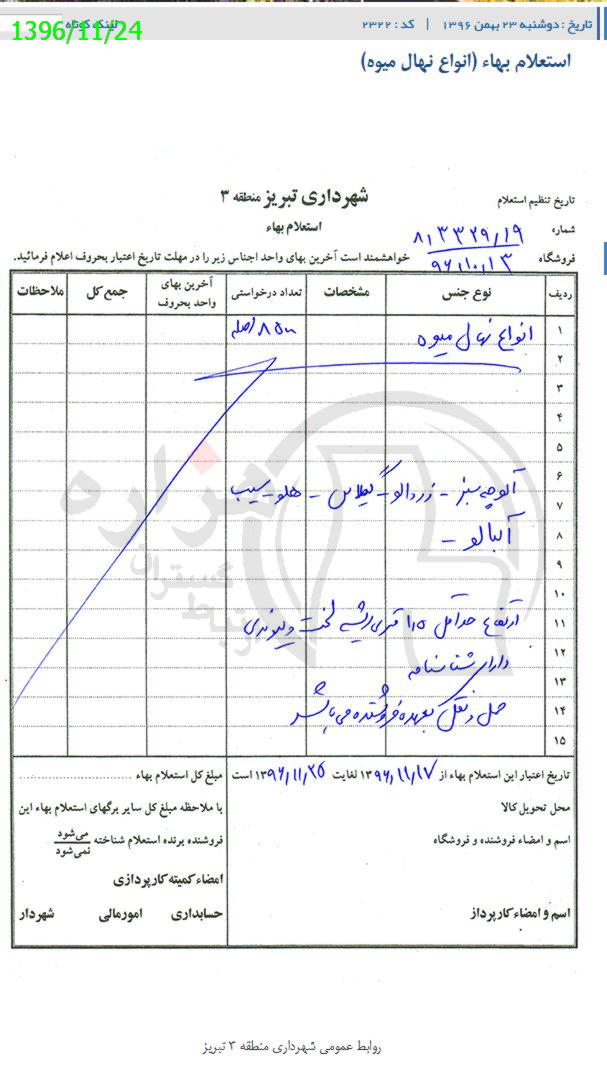 تاریخ : دوشنبه ۲۳ بهمن ۱۳۹۶ | کد : ۲۳۲۲
لینک کوتاه
1396/11/24
استعلام بهاء (انواع نهال میوه)
شهرداری تبریز منطقه ۳
تاریخ تنظیم استعلام
استعلام بهاء
شماره ۸٫۳۳۲۹٫۱۹
۹۶٫۱۰٫۱۳
فروشگاه خواهشمند است آخرین بهای واحد اجناس زیر را در مهلت تاریخ اعتبار بحروف اعلام فرمائید.
ردیف نوع جنس مشخصات تعداد درخواستی آخرین بهای واحد بحروف جمع کل ملاحظات
۱ انواع نهال میوه ۸۵۰۰ اصله
۲
۳
۴
۵
۶
آلوچه سبز - زردآلو - گیلاس - هلو - سیب
۷
۸ آلبالو -
۹
۱۰
۱۱ ارتفاع حداقل ۱٫۵ متری ریشه لخت و پیوندی
۱۲
دارای شناسنامه
۱۳
۱۴ حمل و نقل بعهده فروشنده می باشد
۱۵
هزاره
گسترش
ارتباط
تاریخ اعتبار این استعلام بهاء از ۱۳۹۶٫۱۱٫۱۷ لغایت ۱۳۹۶٫۱۱٫۲۵ است
محل تحویل کالا
اسم و امضاء فروشنده و فروشگاه
اسم و امضاء کارپرداز
مبلغ کل استعلام بهاء ............................
با ملاحظه مبلغ کل سایر برگهای استعلام بهاء این
فروشنده برنده استعلام شناخته می‌شود
نمی‌شود
امضاء کمیته کارپردازی
حسابداری امورمالی شهردار
روابط عمومی شهرداری منطقه ۳ تبریز